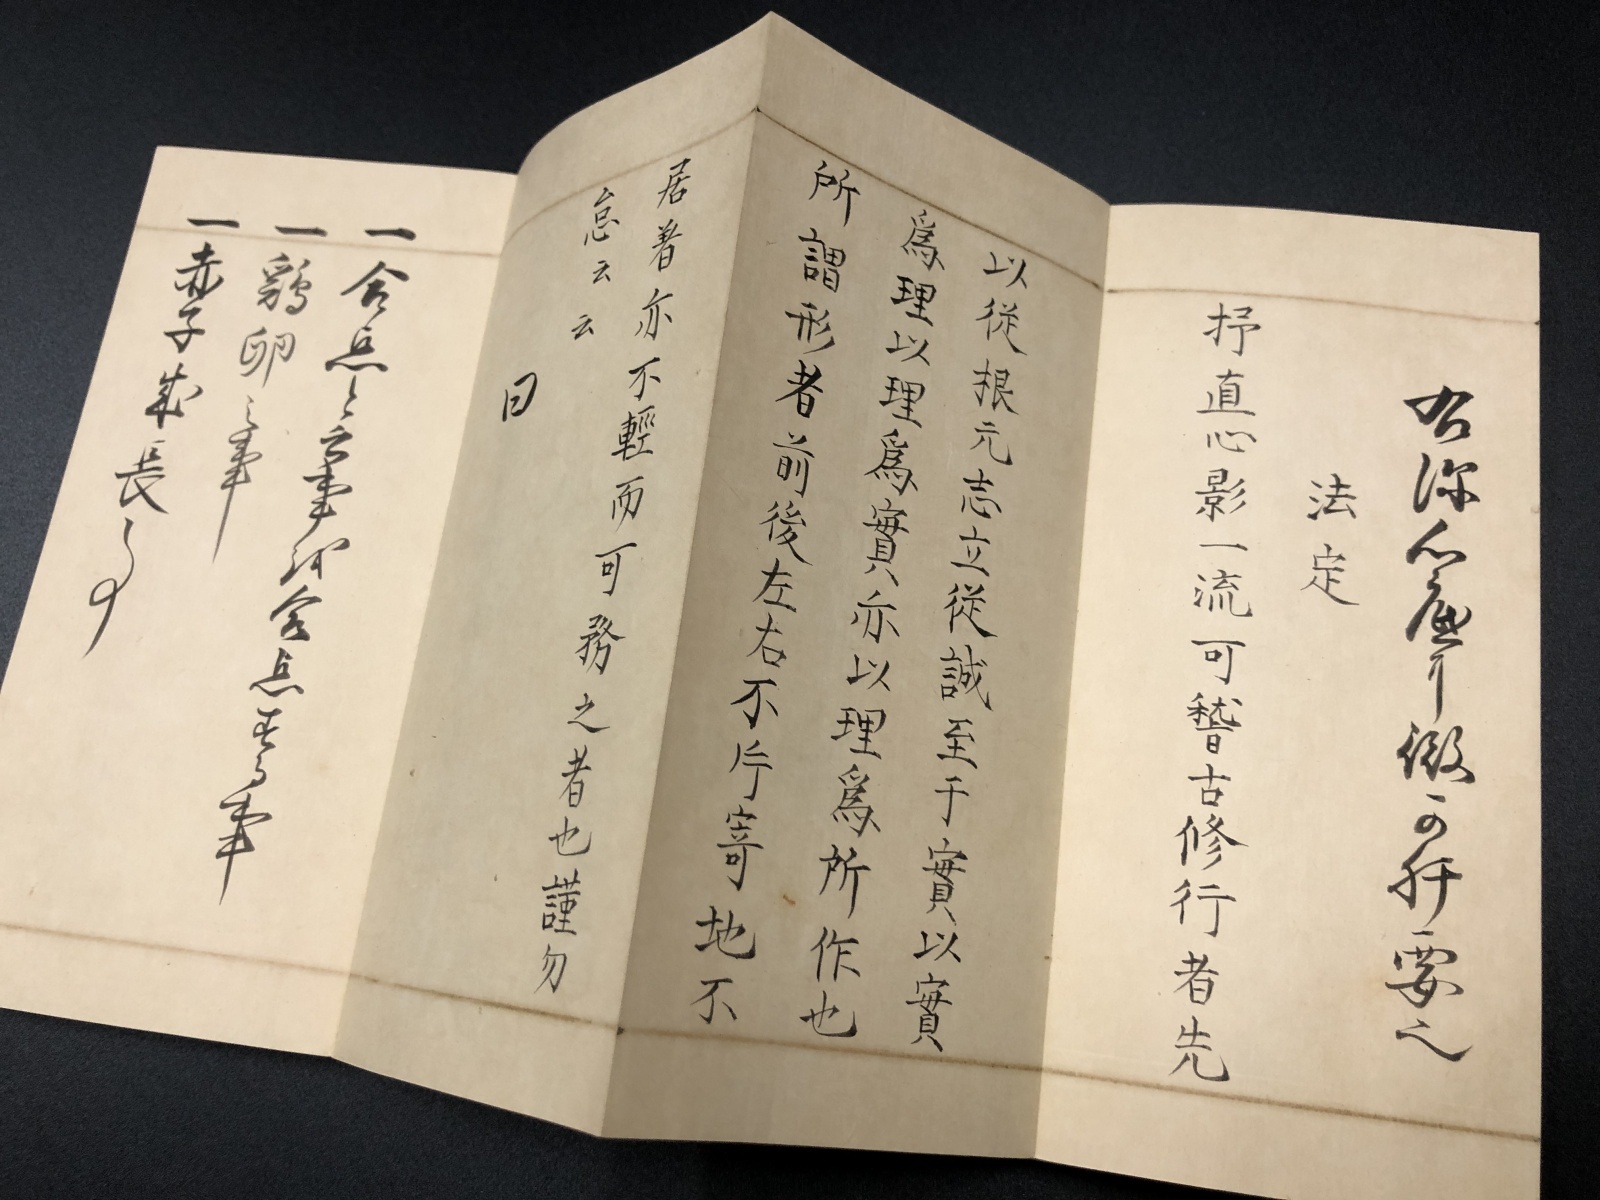 法定
抒直心影一流可稽古修行者先
以従根元志立従誠至于實以實
爲理以理爲實亦以理爲所作也
所謂形者前後左右不片寄地不
居着亦不輕而可務之者也謹勿
怠云云
曰
一 合点之事
一 鶏卵之事
一 赤子成長之事